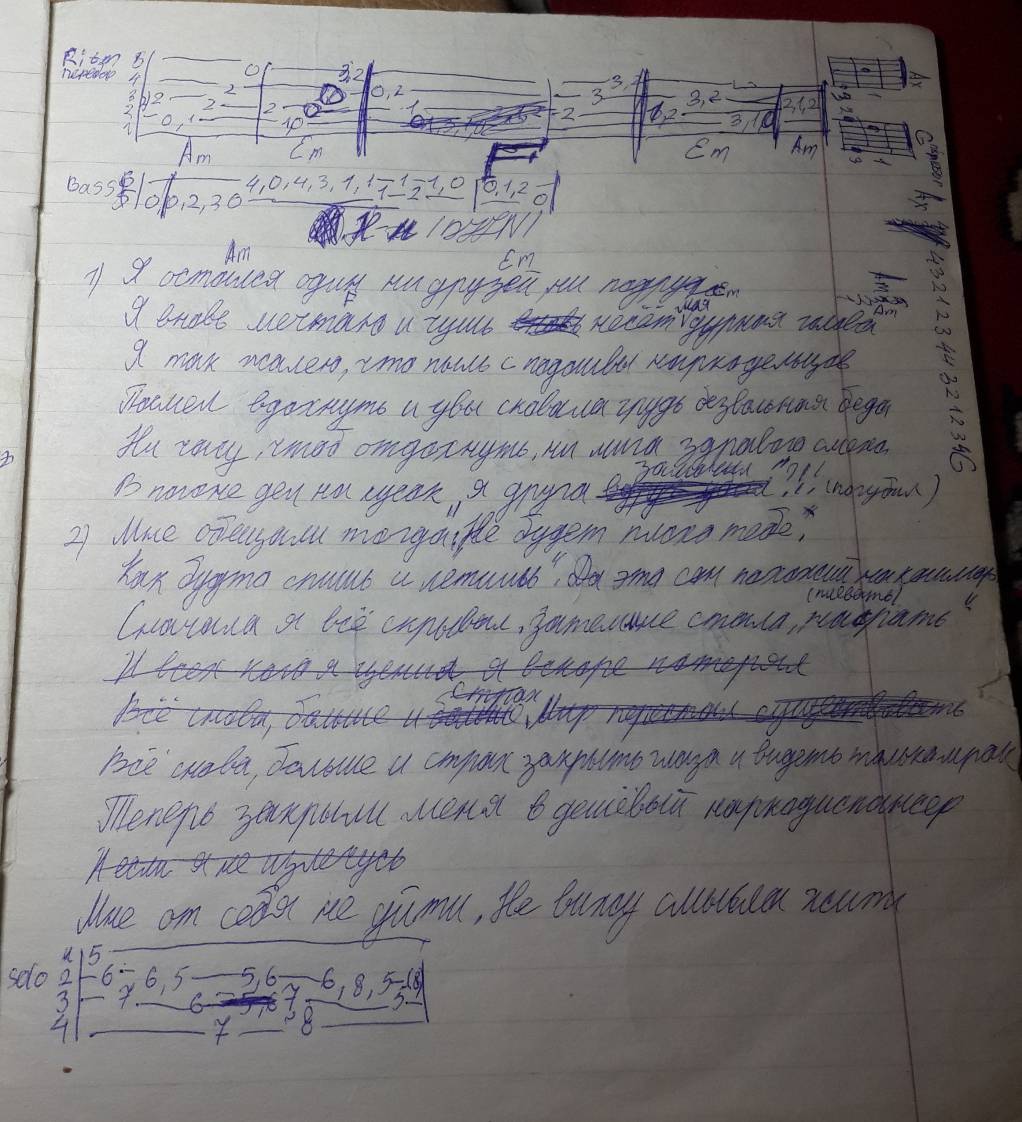 Ritm 5
перебор 4
3
2
1
0 3,2 0,2 3,2
2 2 3 3,2
0,1 2 2 1,0 1 2 0,2 3,1,0 2,1,2
Am Em F Em Am
Bass 4,0,4,3,1,1-1-1,0 0,1,2
0 0,2,3 0 1 2 0
Am Em
1) Я остался один ни друзей, ни подруг
F Em
Я вновь мечтаю и чушь несёт моя дурная голова
Я так жалею, что пыль с подошвы наркодельцов
Посмел вдохнуть и увы сковала грудь безвольная беда
Ни часу, чтоб отдохнуть, ни мига здравого смеха
В погоне дел на кусок, я друга заложил"?!! (погубил)
2) Мне обещали тогда: "Не будет плохо тебе,
Как будто спишь и летишь". Да это сон похожий на кошмар
(плевать)
Сначала я всё скрывал, затем мне стало "насрать"
И всех кого я ценил, я вскоре потерял
страх
Всё снова, больше и больше, Мир перестал существовать
Всё снова, больше и страх закрыть глаза и видеть только мрак
Теперь закрыли меня в дешёвый наркодиспансер
А если я не излечусь
Мне от себя не уйти. Не вижу смысла жить
solo
1 5
2 6 - 6,5 5,6 6,8,5 (8)
3 7 6 5,6 7 5
4 7 8
Am
432123443212346
Am